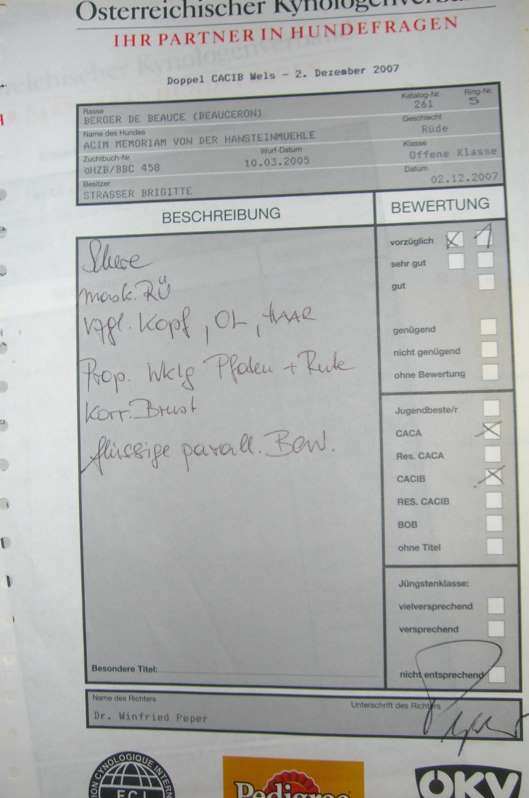 Österreichischer Kynologenverba
IHR PARTNER IN HUNDEFRAGEN
Doppel CACIB Wels - 2. Dezember 2007
Rasse
BERGER DE BEAUCE (BEAUCERON)
Katalog-Nr.
261
Ring-Nr.
5
Name des Hundes
ACIM MEMORIAM VON DER HANSTEINMUEHLE
Geschlecht
Rüde
Zuchtbuch-Nr.
ÖHZB/BBC 458
Wurf-Datum
10.03.2005
Klasse
Offene Klasse
Besitzer
STRASSER BRIGITTE
Datum
02.12.2007
BESCHREIBUNG
Schere
mask. RÜ
Vzgl. Kopf, OL, HAAR
Prop. Wklg Pfoten + Rute
Korr. Brust
flüssige parall. Bew.
Besondere Titel:
BEWERTUNG
vorzüglich
1
sehr gut
gut
genügend
nicht genügend
ohne Bewertung
Jugendbeste/r
CACA
Res. CACA
CACIB
RES. CACIB
BOB
ohne Titel
Jüngstenklasse:
vielversprechend
versprechend
nicht entsprechend
Name des Richters
Dr. Winfried Peper
Unterschrift des Richters
Peper
ION CYNOLOGIQUE INTERN
FCI
Pedigree
ÖKV